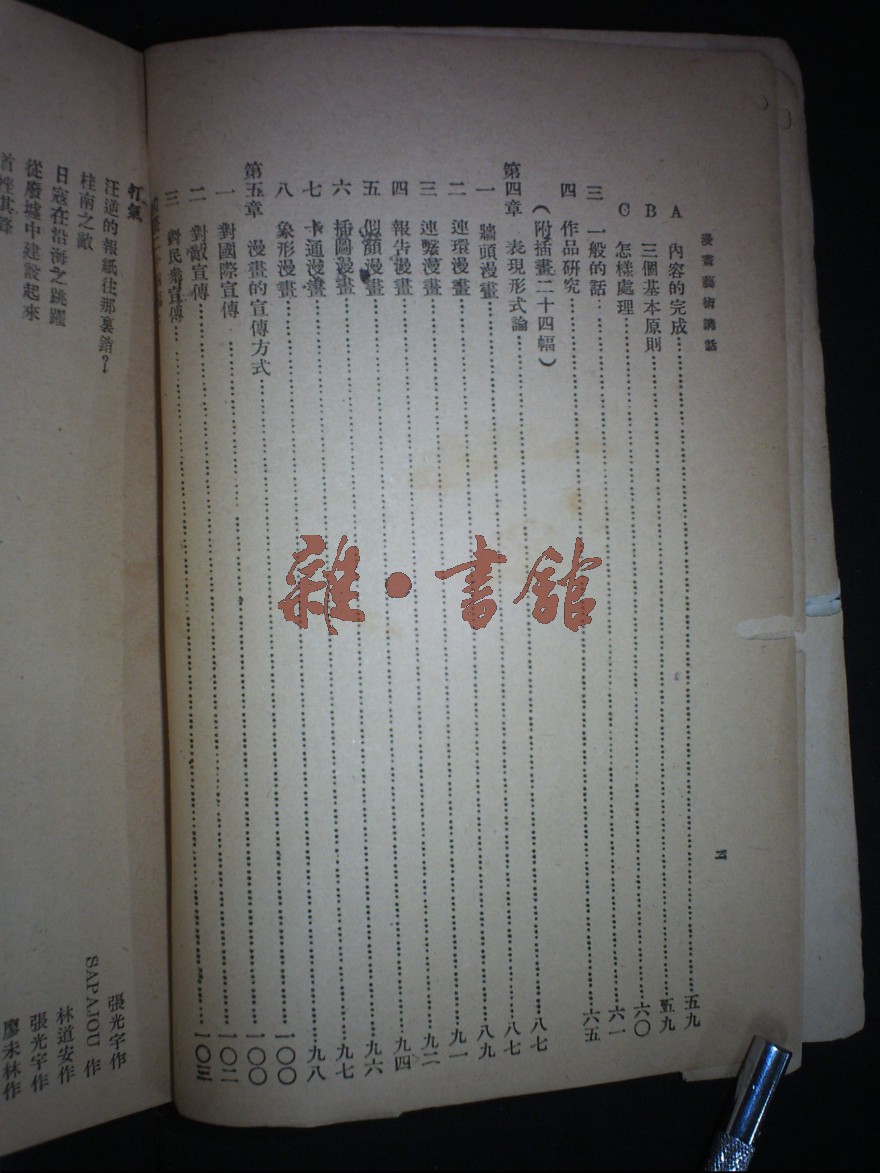 漫畫藝術講話
A 內容的完成……五九
B 三個基本原則……五九
C 怎樣處理……六〇
三 一般的話……六一
四 作品研究……六五
(附插畫二十四幅)
第四章 表現形式論……八七
一 牆頭漫畫……八七
二 連環漫畫……八九
三 連繫漫畫……九一
四 報告漫畫……九二
五 似顏漫畫……九四
六 插圖漫畫……九六
七 卡通漫畫……九七
八 象形漫畫……九八
第五章 漫畫的宣傳方式……一〇〇
一 對國際宣傳……一〇〇
二 對敵宣傳……一〇二
三 對民衆宣傳……一〇三
VI
打氣
汪道的報紙往那裏銷? 張光宇作
桂南之敵 SAPAJOU 作
日寇在沿海之跳躍 林道安作
從廢墟中建設起來 張光宇作
廖未林作
雜·書館